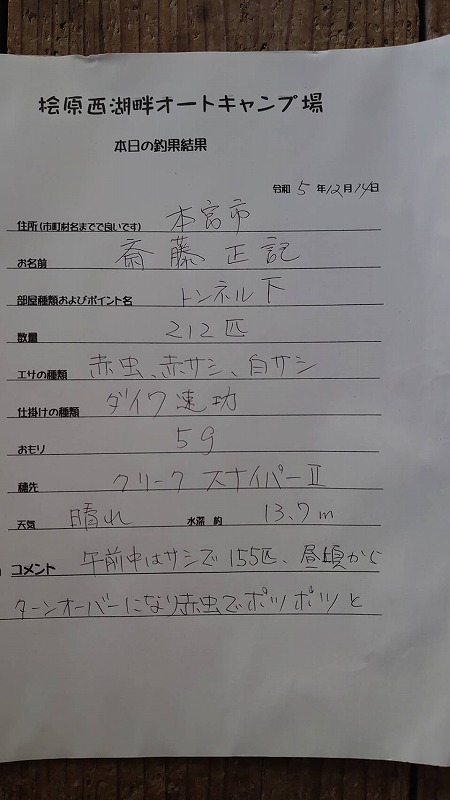 桧原西湖畔オートキャンプ場
本日の釣果結果
令和 5 年 12 月 14 日
住所(市町村名までで良いです) 本宮市
お名前 斎藤 正記
部屋種類およびポイント名 トンネル下
数量 212匹
エサの種類 赤虫、赤サシ、白サシ
仕掛けの種類 ダイワ速功
おもり 5g
穂先 クリーク スナイパーⅡ
天気 晴れ 水深 約 13.7m
コメント 午前中はサシで155匹、昼頃から
ターンオーバーになり赤虫でポツポツと